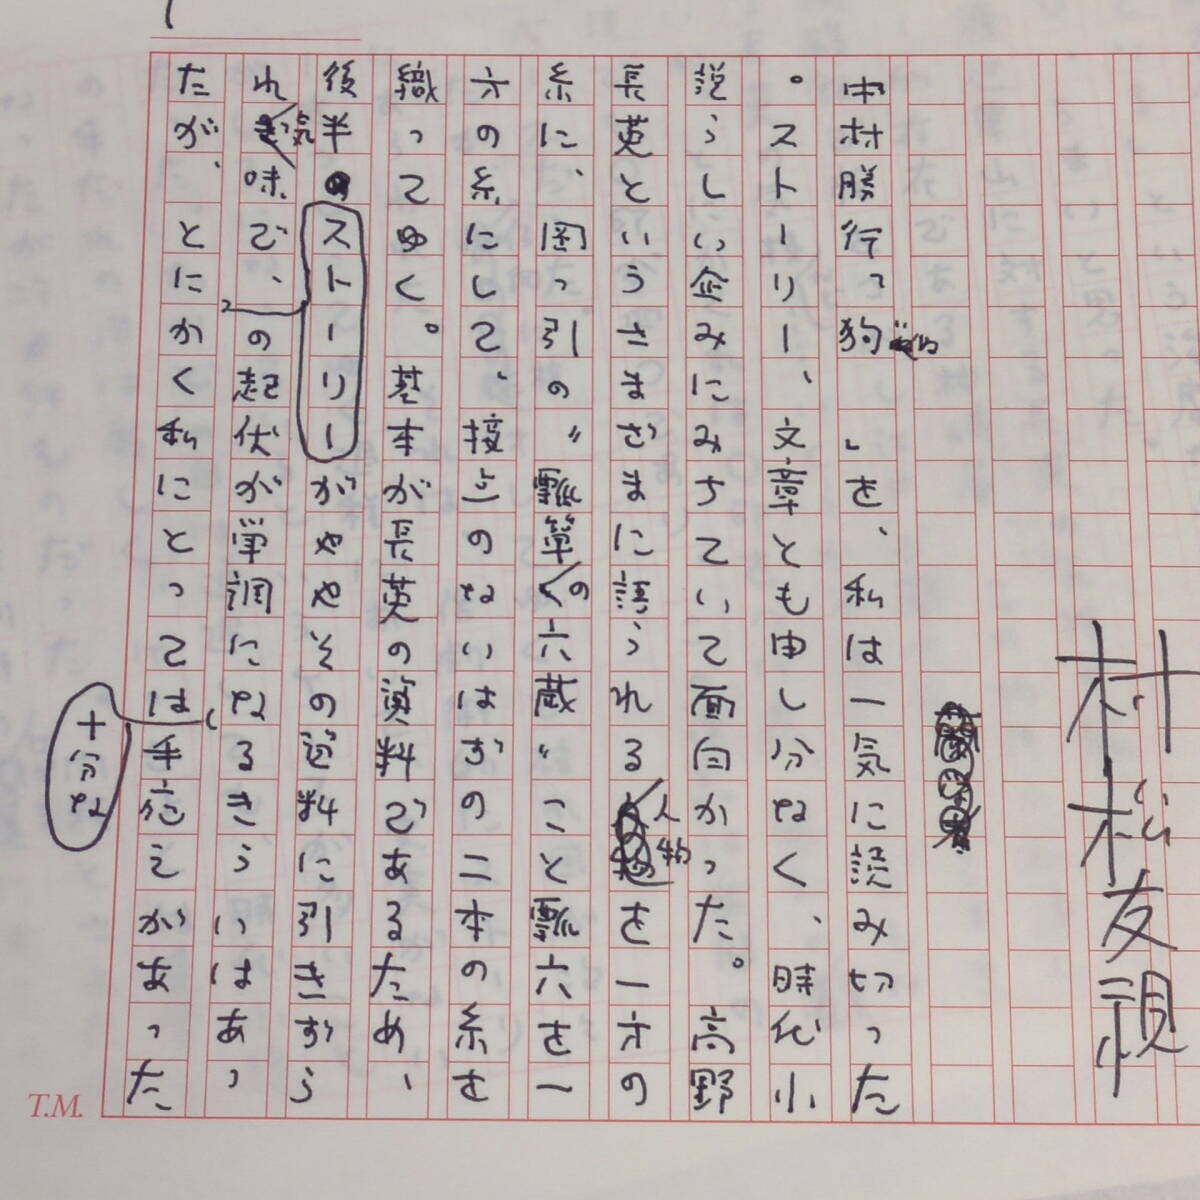 村松友視
中村勝行の狗、」を、私は一気に読み切った
。ストーリー、文章とも申し分なく、時代小
説らしい企みにみちていて面白かった。高野
長英というさまざまに語られる人物を一方の
糸に、岡っ引の〝瓢箪の六蔵〟こと瓢六を一
方の糸にして、接点のないはずの二本の糸を
織ってゆく。基本が長英の資料であるため、
後半がややその資料に引きずら
れ気味で、ストーリーの起伏が単調になるきらいはあっ
たが、とにかく私にとっては十分な手応えがあった
T.M.